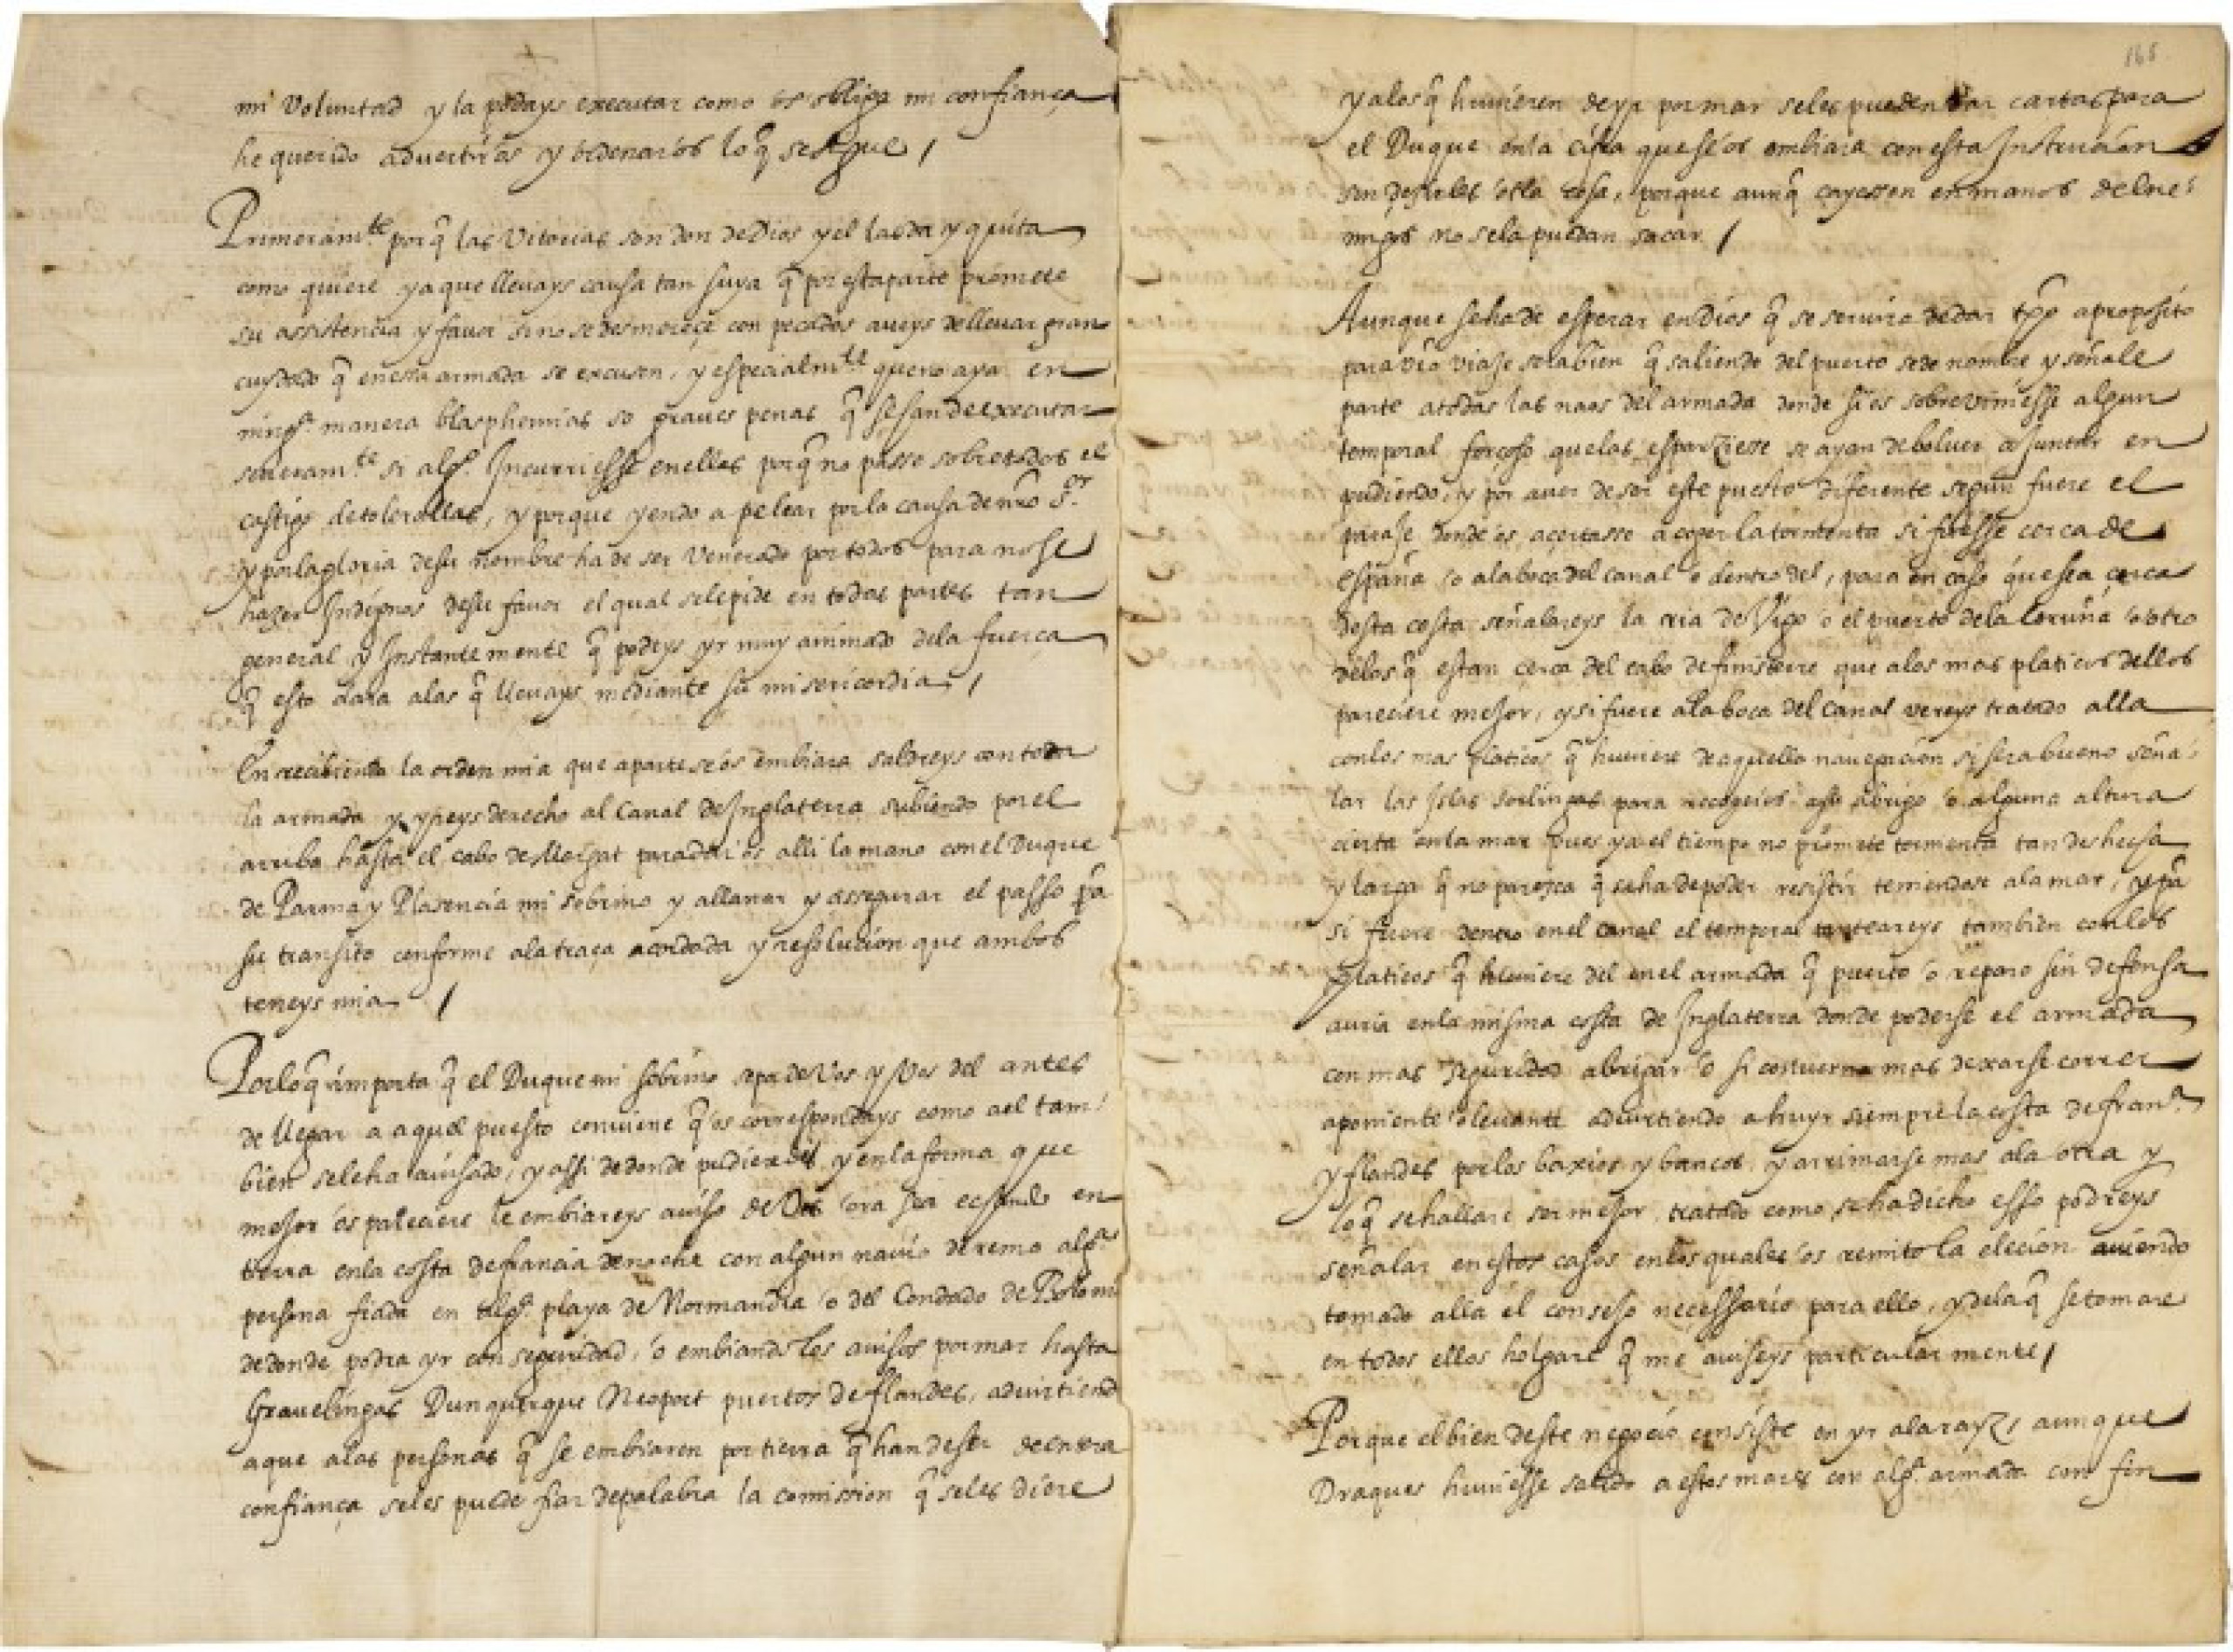 mi Voluntad y la podays executar como os obliga mi confiança
he querido advertiros y ordenaros lo q̃ se sigue /
Primeramte. por q̃ las Vitorias son don de Dios y el las da y quita
como quiere ya que lleuays causa tan suya q̃ por esta parte promete
su assistencia y fauor si no se desmereçe con pecados aueys de lleuar gran
cuydado q̃ en essa armada se excusen, y especialmte. que no aya en
ningª. manera blasphemias so graues penas q̃ se han de executar
seueramte. si algº. Incurriesse en ellas por q̃ no passe sobre todos el
castigo de tolerallas, y porque yendo a pelear por la causa de nro Sor.
y por la gloria de su nombre ha de ser venerado por todos para no se
hazer Indignos de su fauor el qual se le pide en todas partes tan
general y Instantemente q̃ podeys yr muy animado de la fuerça
q̃ esto dara a las q̃ lleuays mediante su misericordia /
En recibiendo la orden mia que aparte se os embiara saldreys con toda
la armada y yreys derecho al Canal de Inglaterra subiendo por el
arriba hasta el cabo de Margat para daros alli la mano con el Duque
de Parma y Plasencia mi sobrino y allanar y assegurar el passo pa
su transito conforme a la traça acordada y resolucion que ambos
teneys mia /
Por lo q̃ importa q̃ el Duque mi sobrino sepa de Vos y Vos del antes
de llegar a aquel puesto conuiene q̃ os correspondays como a el tam-
bien se le ha auisado, y assi de donde pudieredes y en la forma que
mejor os pareciere le embiareys auiso de Vos ora sea echando en
tierra en la costa de francia de noche con algun nauio de remo algª.
persona fiada en algª. playa de Normandia o del Condado de Bolonia
de donde podra yr con seguridad, o embiando los auisos por mar hasta
Grauelingas Dunquerque Neoport puertos de flandes, aduirtiendo
a que a las personas q̃ se embiaren por tierra q̃ han de ser de entera
confiança se les puede fiar de palabra la comission q̃ se les diere
165
y a los q̃ huuieren de yr por mar se les pueden dar cartas para
el Duque en la cifra que se os embiara con esta Instruçion
sin dezirles otra cosa, porque aunq̃ cayessen en manos de ene-
migos no se la puedan sacar /
Aunque se ha de esperar en Dios q̃ se seruira de dar tpo a proposito
para vro viaje sera bien q̃ saliendo del puerto se de nombre y señale
parte a todas las naos del armada donde si os sobreuiniesse algun
temporal forçoso que las esparziesse se ayan de boluer a Juntar en
pudiendo, y por auer de ser este puesto diferente segun fuere el
paraje donde os açertasse a coger la tormenta si fuesse cerca de
españa o a la boca del canal o dentro del, para en caso que sea cerca
desta costa señalareys la ria de Vigo o el puerto de la Coruña o otro
de los q̃ estan cerca del cabo de finisterre que a los mas platicos dellos
pareciere mejor, y si fuere a la boca del canal vereys tratado alla
con los mas platicos q̃ huuiere de aquella nauegacion si sera bueno seña-
lar las Islas Sorlingas para recogeros a su abrigo o alguna altura
cierta en la mar pues ya el tiempo no promete tormenta tan deshecha
y larga q̃ no parezca q̃ se ha de poder resistir teniendose a la mar, y pa
si fuere dentro en el canal el temporal tanteareys tambien con los
platicos q̃ huuiere del en el armada q̃ puerto o reparo sin defensa
auria en la misma costa de Inglaterra donde poderse el armada
con mas seguridad abrigar o si conuerna mas dexarse correr
a poniente o leuante aduirtiendo a huyr siempre la costa de franª.
y flandes por los baxios y bancos y arrimarse mas a la otra y
lo q̃ se hallare ser mejor tratado como se ha dicho esso podreys
señalar en estos casos en los quales os remito la elecion auiendo
tomado alla el consejo necessario para ello, y de la q̃ se tomare
en todos ellos holgare q̃ me auiseys particularmente /
Porque el bien deste negocio consiste en yr a la rayz, aunque
Draques huuiesse salido a estos mares con algª. armada con fin